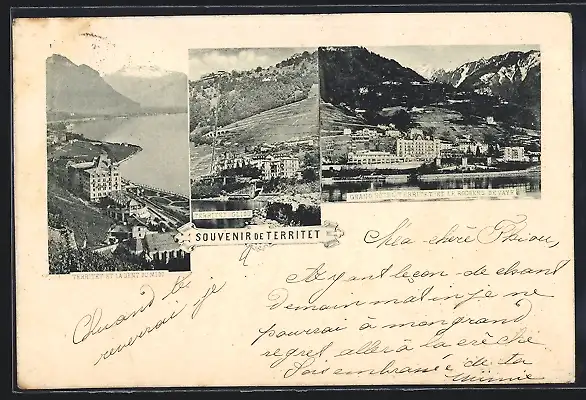 TERRITET ET LA DENT DU MIDI
TERRITET GLION
GRAND HÔTEL TERRITET ET LE ROCHERS DE NAYE
SOUVENIR DE TERRITET
Ma chère
Ayant leçon de chant
demain matin je ne
pourrai à mon grand
regret aller à la crèche
Sois embrassée de ta
Mimie
Quand te
reverrai je